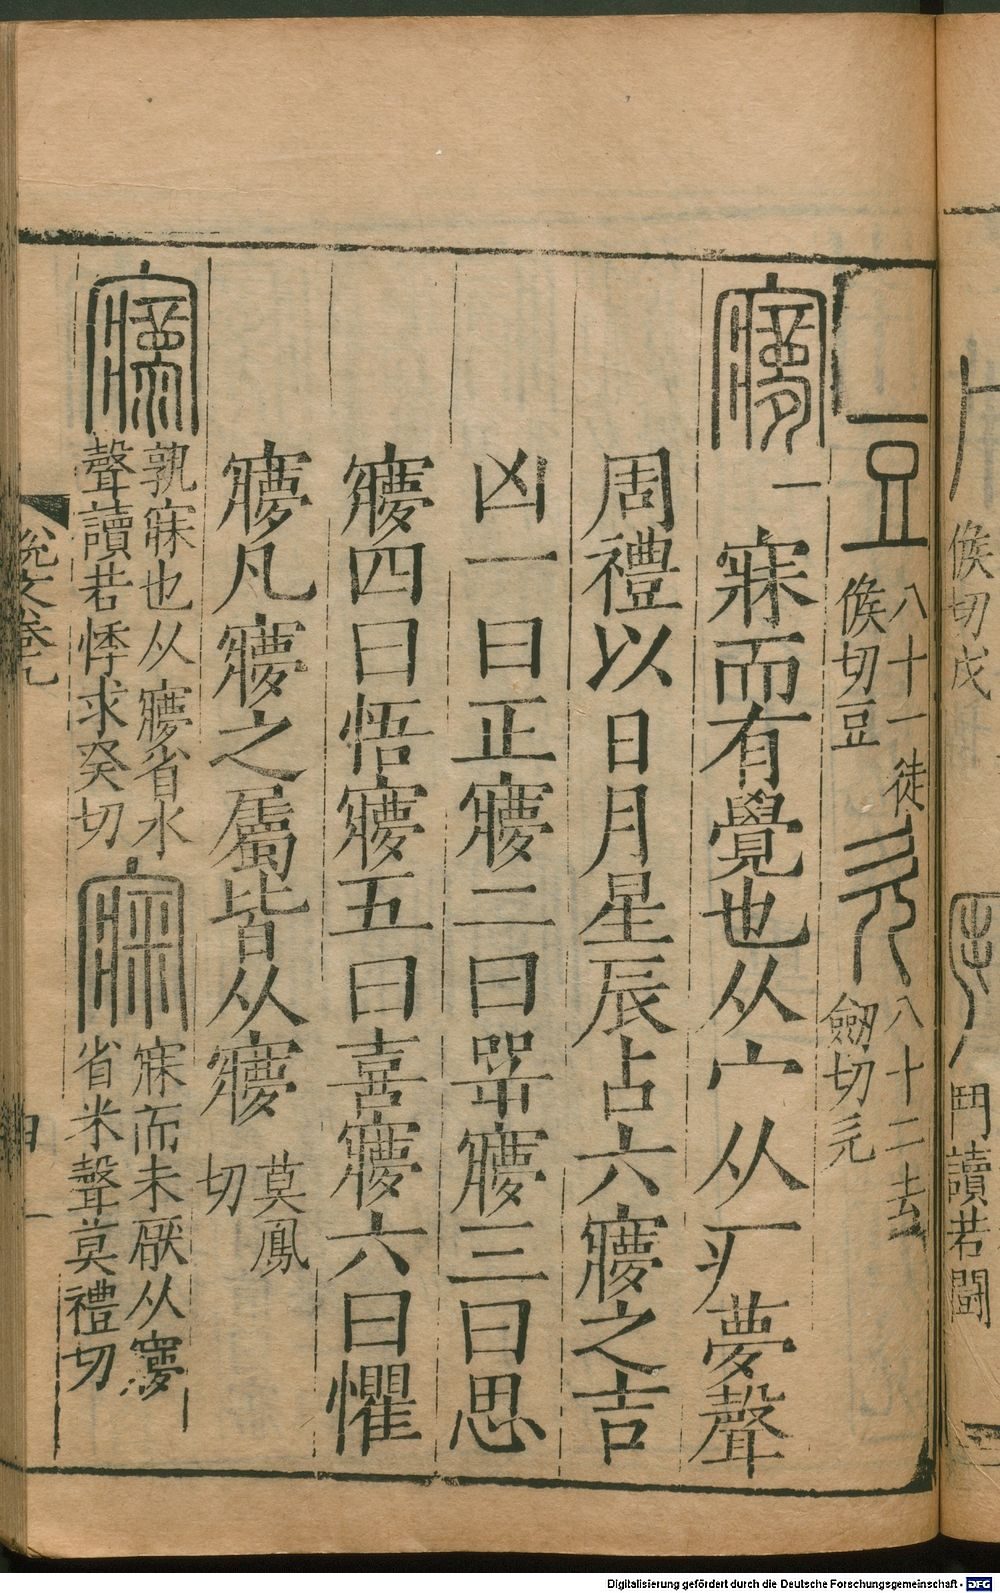 豆 八十一徒
候切豆
旡 八十二去
劒切旡
㝱一 寐而有覺也从宀从疒夢聲
周禮以日月星辰占六㝱之吉
凶一曰正㝱二曰咢㝱三曰思
㝱四曰悟㝱五曰喜㝱六曰懼
㝱凡㝱之屬皆从㝱 莫鳳
切
孰寐也从㝱省水
聲讀若悸求癸切
寐而未厭从㝱
省米聲莫禮切
說文卷九
候切戊
鬥讀若鬪
Digitalisierung gefördert durch die Deutsche Forschungsgemeinschaft - DFG